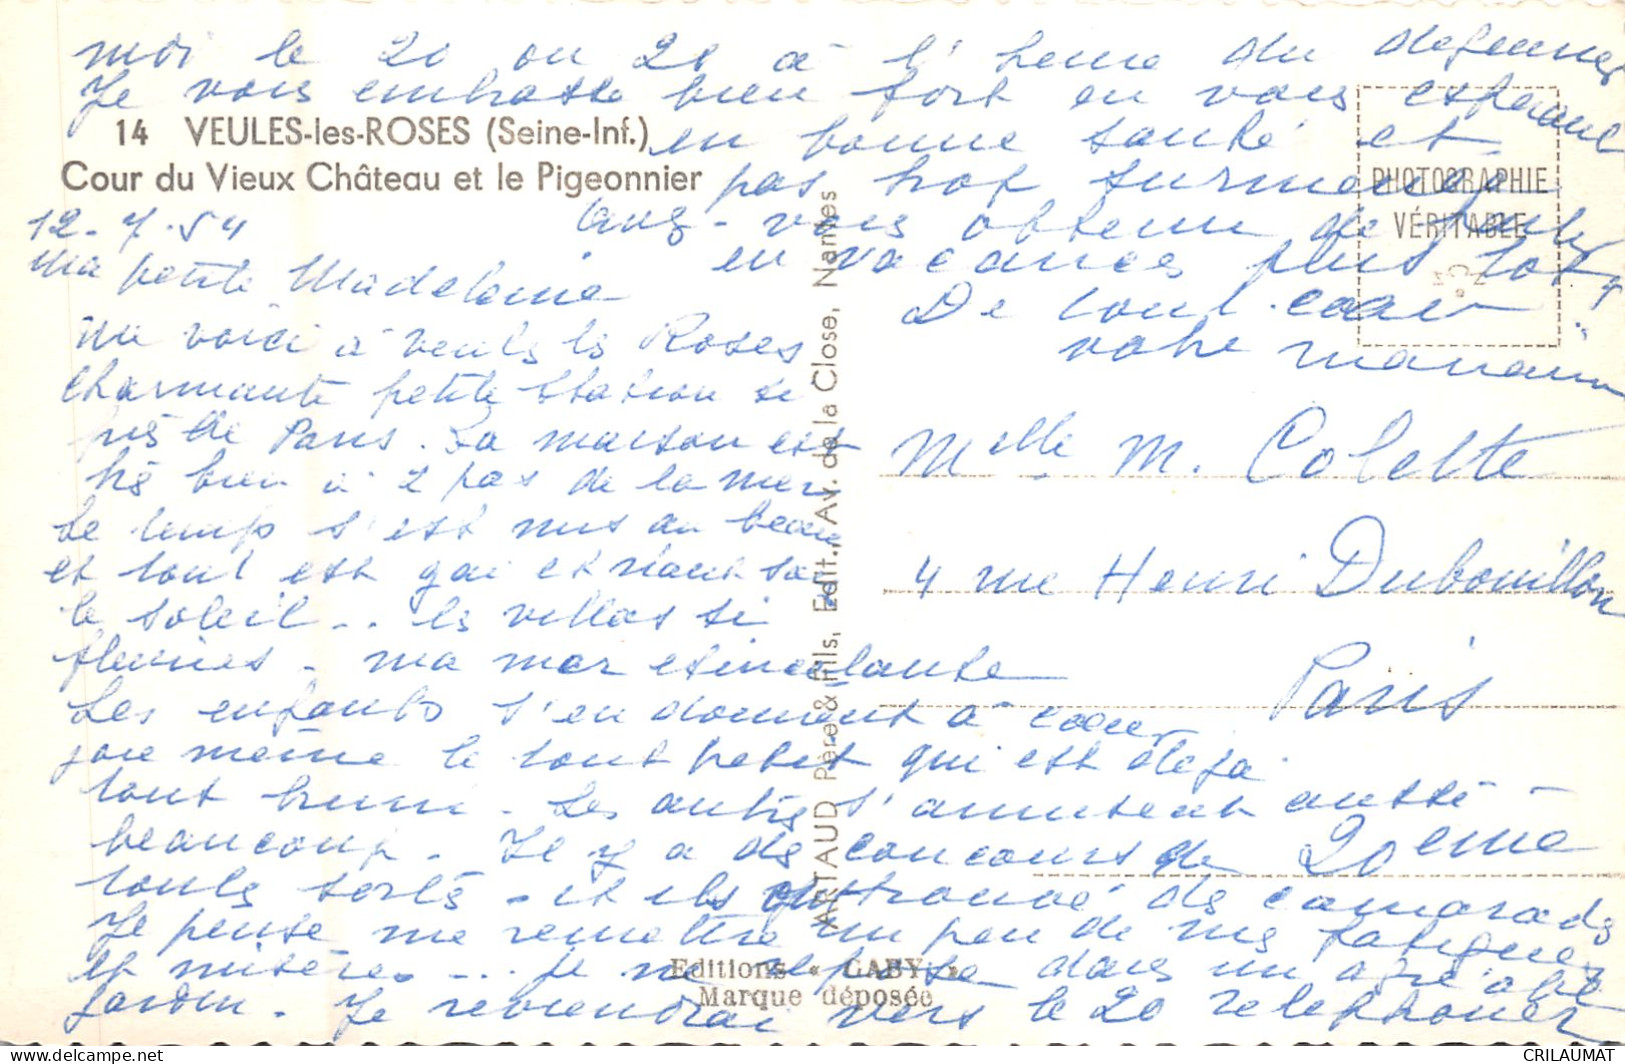 14 VEULES-les-ROSES (Seine-Inf.)
Cour du Vieux Château et le Pigeonnier
12-7.54
Ma petite Madeleine
Me voici à Veules les Roses
charmante petite station si
près de Paris. La maison est
très bien à 2 pas de la mer
Le temps s'est mis au beau
et tout est gai et riant sous
le soleil... les villas si
fleuries - ma mer étincelante
Les enfants s'en donnent à cœur
joie même le tout petit qui est déjà
tout bruni - Les autres s'amusent aussi
beaucoup. Il y a des concours de
toutes sortes - et ils ont trouvé des camarades
Je pense me remettre un peu de mes fatigues
et misères... je me repose dans un agréable
jardin. Je reviendrai vers le 20 telephonez
moi le 20 ou 21 à l'heure du dejeuner
Je vous embrasse bien fort en vous esperant
en bonne santé et
pas trop surmenée
Avez-vous obtenu de partir
en vacances plus tôt ?
De tout cœur
votre maman
PHOTOGRAPHIE
VÉRITABLE
Melle M. Colette
4 rue Henri Dubouillon
Paris
20eme
ARTAUD Père & Fils, Edit., Av. de la Close, Nantes
Editions « GABY »
Marque déposée
CRILAUMAT